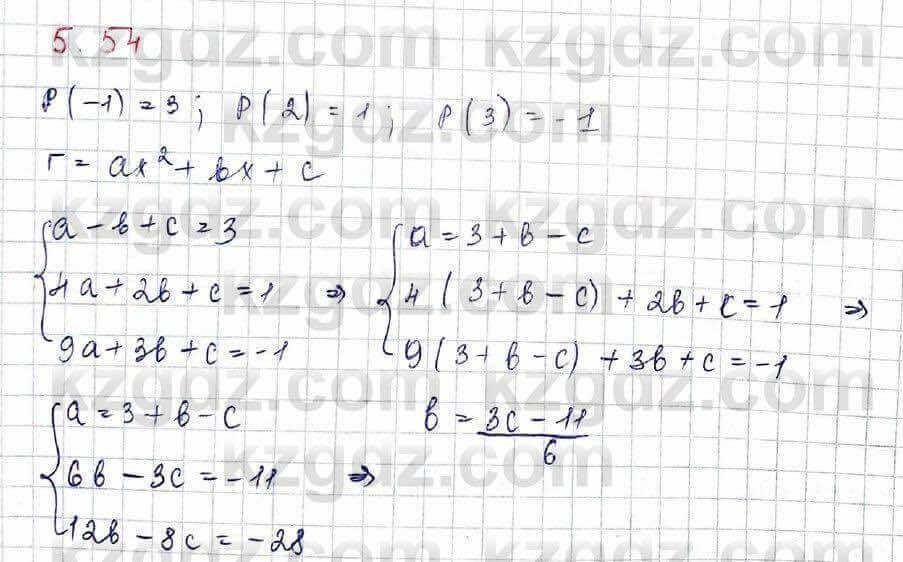 5.54
P(-1) = 3; P(2) = 1; P(3) = -1
r = ax² + bx + c
{ a - b + c = 3
4a + 2b + c = 1 ⇒
9a + 3b + c = -1
{ a = 3 + b - c
4(3 + b - c) + 2b + c = 1 ⇒
9(3 + b - c) + 3b + c = -1
{ a = 3 + b - c
6b - 3c = -11 ⇒
12b - 8c = -28
b = (3c - 11)/6
kzgdz.com